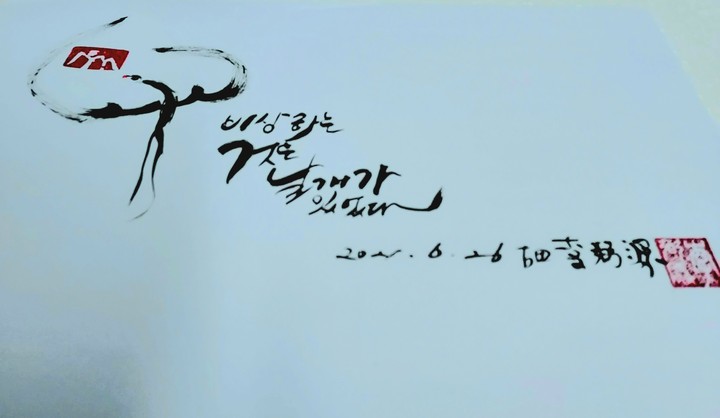 비상하는
것은
날개가
있었다
2021. 6. 26